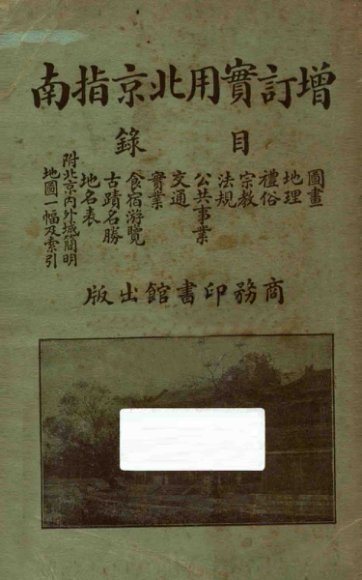 增訂實用北京指南
目錄
圖畫
地理
禮俗
宗教
法規
公共事業
交通
實業
食宿游覽
古蹟名勝
地名表
附北京內外城簡明
地圖一幅及索引
商務印書館出版